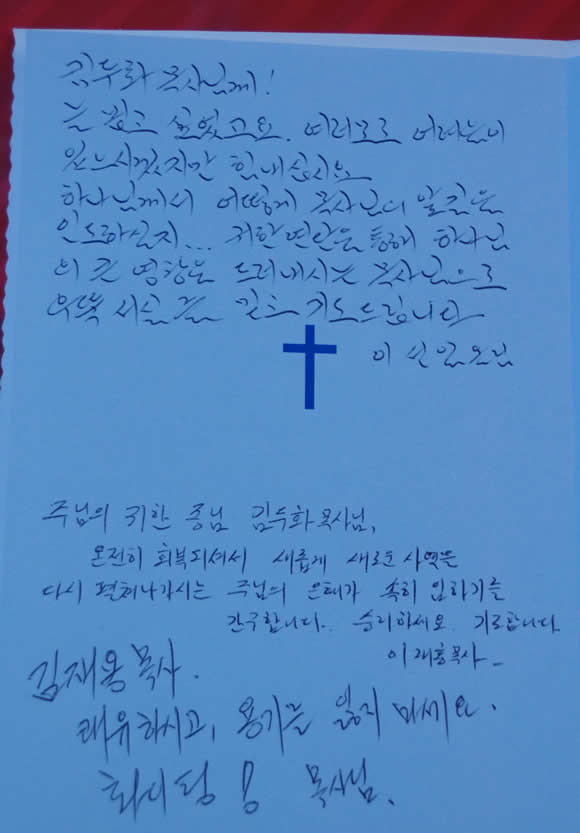 김두화 목사님께!
늘 뵙고 싶었고요. 여러모로 어려움이
있으시겠지만 힘내십시요
하나님께서 어떻게 목사님의 앞길을
인도하실지... 귀한 연단을 통해 하나님
의 큰 영광을 드러내시는 목사님으로
우뚝 서실 줄 믿고 기도드립니다
이 선 일 드림
주님의 귀한 종님 김두화 목사님,
온전히 회복되셔서 새롭게 새로운 사역을
다시 펼쳐나가시는 주님의 은혜가 속히 임하기를
간구합니다. 승리하세요. 기도합니다.
이재홍목사_
김재용 목사.
쾌유하시고, 용기를 잃지 마세요.
화이팅! 목사님.